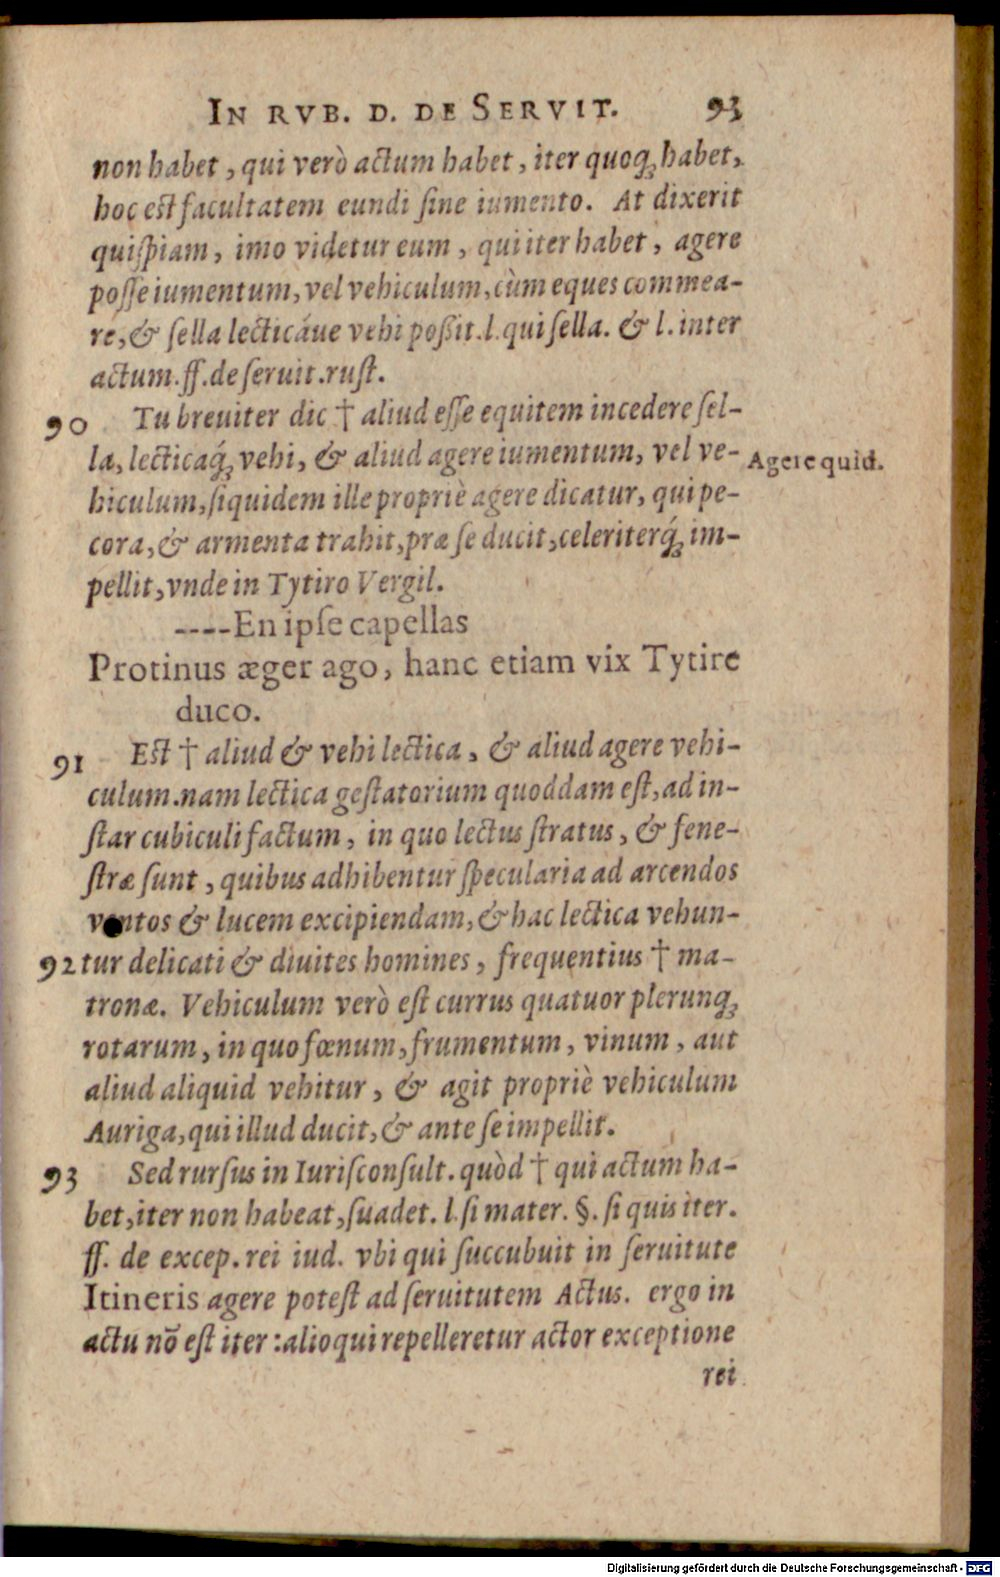 IN RVB. D. DE SERVIT. 93
non habet, qui verò actum habet, iter quoq́; habet,
hoc est facultatem eundi ſine iumento. At dixerit
quiſpiam, imo videtur eum, qui iter habet, agere
poſſe iumentum, vel vehiculum, cùm eques commea-
re, & ſella lecticáue vehi poßit. l. qui ſella. & l. inter
actum. ff. de ſeruit. ruſt.
90 Tu breuiter dic † aliud eſſe equitem incedere ſel-
la, lecticaq́; vehi, & aliud agere iumentum, vel ve-
Agere quid.
hiculum, ſiquidem ille propriè agere dicatur, qui pe-
cora, & armenta trahit, præ ſe ducit, celeriterq́; im-
pellit, vnde in Tytiro Vergil.
----En ipſe capellas
Protinus æger ago, hanc etiam vix Tytire
duco.
91 Eſt † aliud & vehi lectica, & aliud agere vehi-
culum. nam lectica geſtatorium quoddam eſt, ad in-
ſtar cubiculi factum, in quo lectus ſtratus, & fene-
ſtræ ſunt, quibus adhibentur ſpecularia ad arcendos
ventos & lucem excipiendam, & hac lectica vehun-
92 tur delicati & diuites homines, frequentius † ma-
tronæ. Vehiculum verò eſt currus quatuor plerunq;
rotarum, in quo fœnum, frumentum, vinum, aut
aliud aliquid vehitur, & agit propriè vehiculum
Auriga, qui illud ducit, & ante ſe impellit.
93 Sed rurſus in Iuriſconſult. quòd † qui actum ha-
bet, iter non habeat, ſuadet. l. ſi mater. §. ſi quis iter.
ff. de excep. rei iud. vbi qui ſuccubuit in ſeruitute
Itineris agere poteſt ad ſeruitutem Actus. ergo in
actu nō eſt iter: alioqui repelleretur actor exceptione
rei
Digitalisierung gefördert durch die Deutsche Forschungsgemeinschaft - DFG